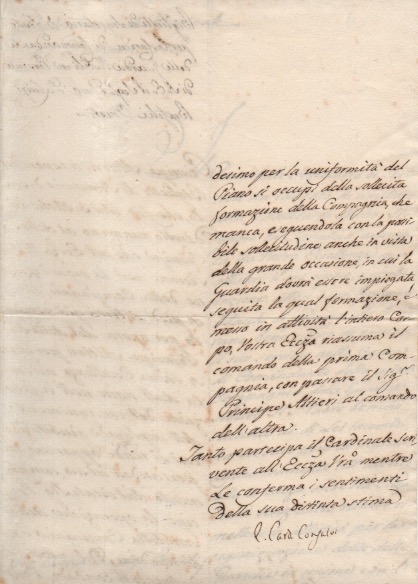 desimo per la uniformità del
Piano si occupi della sollecita
formazione della Compagnia, che
manca, eseguendola con la possi
bile sollecitudine anche in vista
della grande occasione, in cui la
Guardia dovrà essere impiegata
seguita la qual formazione, e
messo in attività l'intiero Cor-
po, Vostra Eccza riassuma il
comando della prima Com-
pagnia, con passare il Sigr
Principe Altieri al comando
dell'altra.
Tanto partecipa il Cardinale scri-
vente all'Eccza Vra mentre
Le conferma i sentimenti
della sua distinta stima
Card. Consalvi